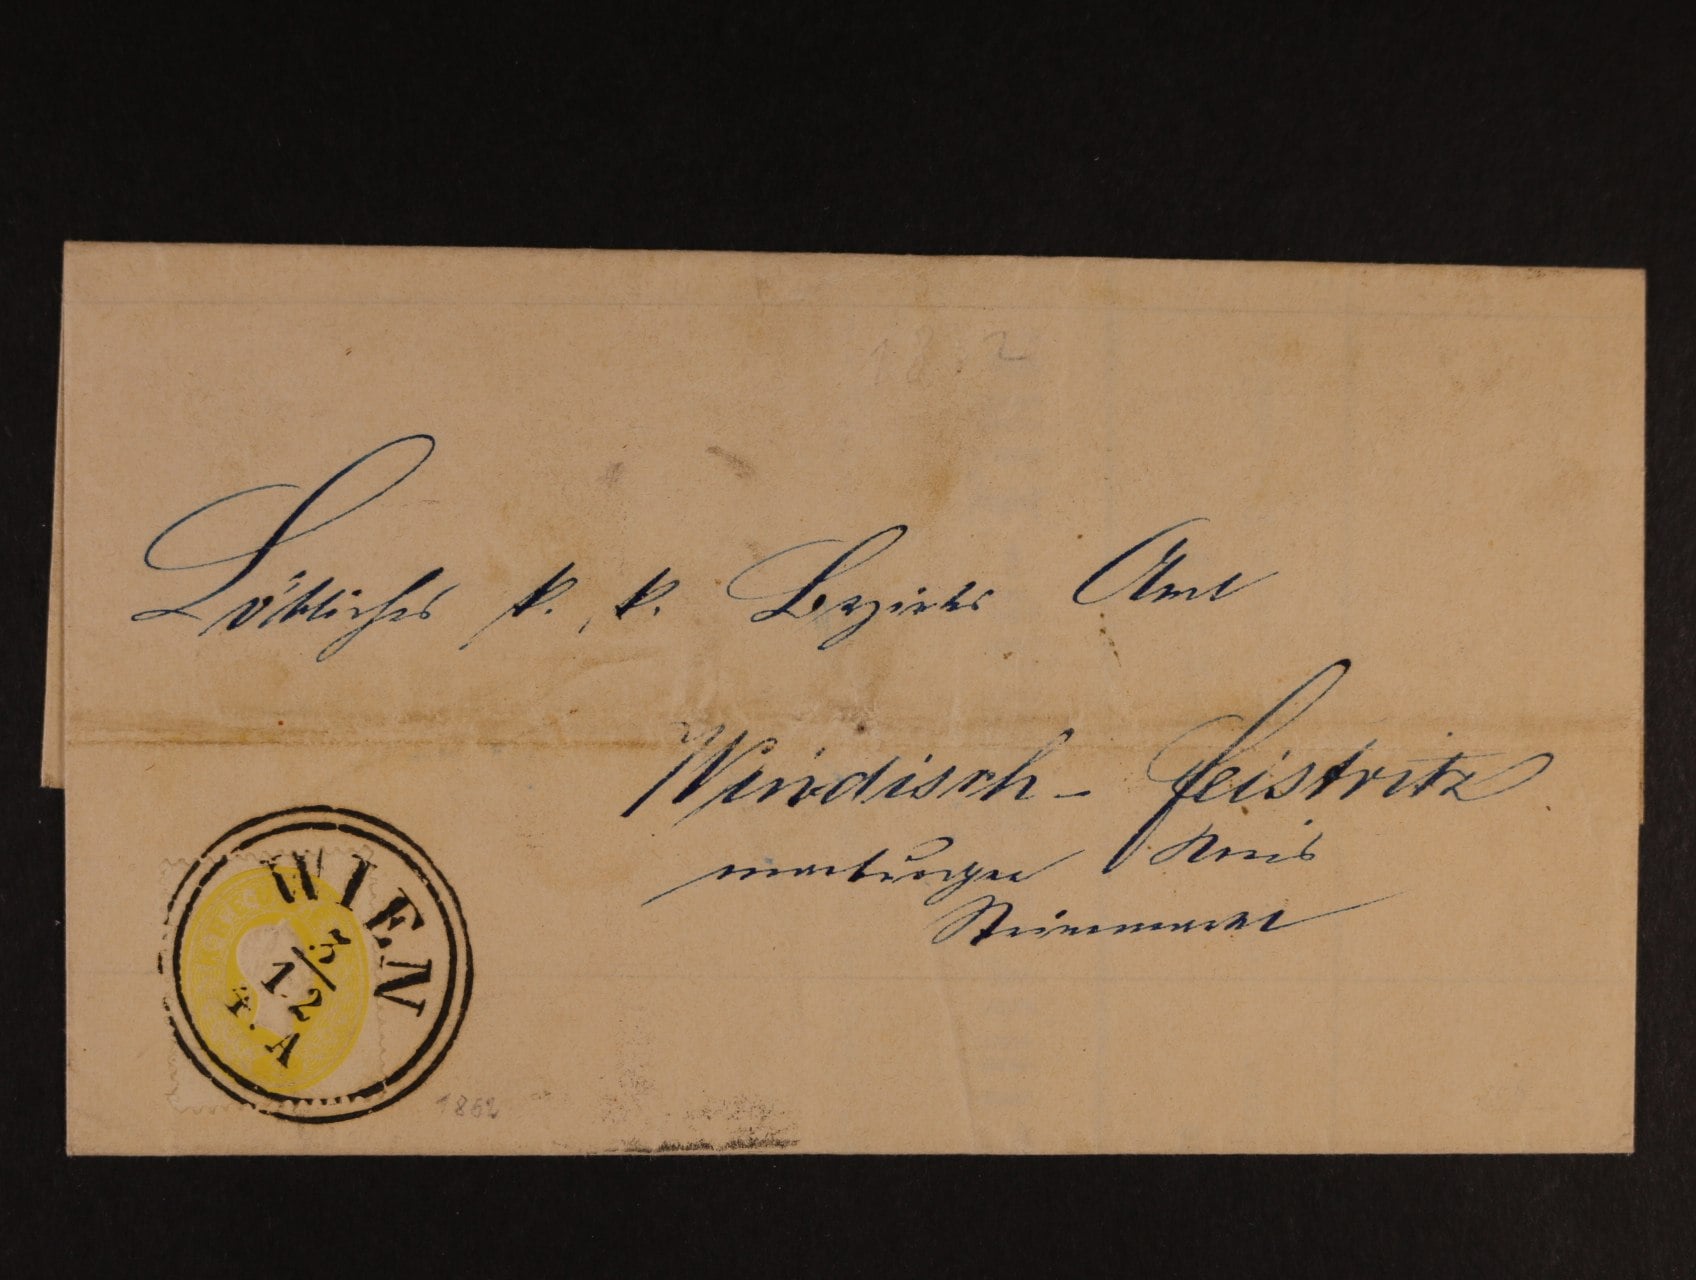 Löbliches k. k. Bezirks Amt
Windisch - Feistritz
Marburger Kreis
Steiermark
WIEN
5/12
4. A
1862